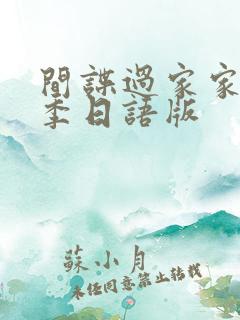 間諜過家家
季日語版
蘇小月
未经同意禁止转载